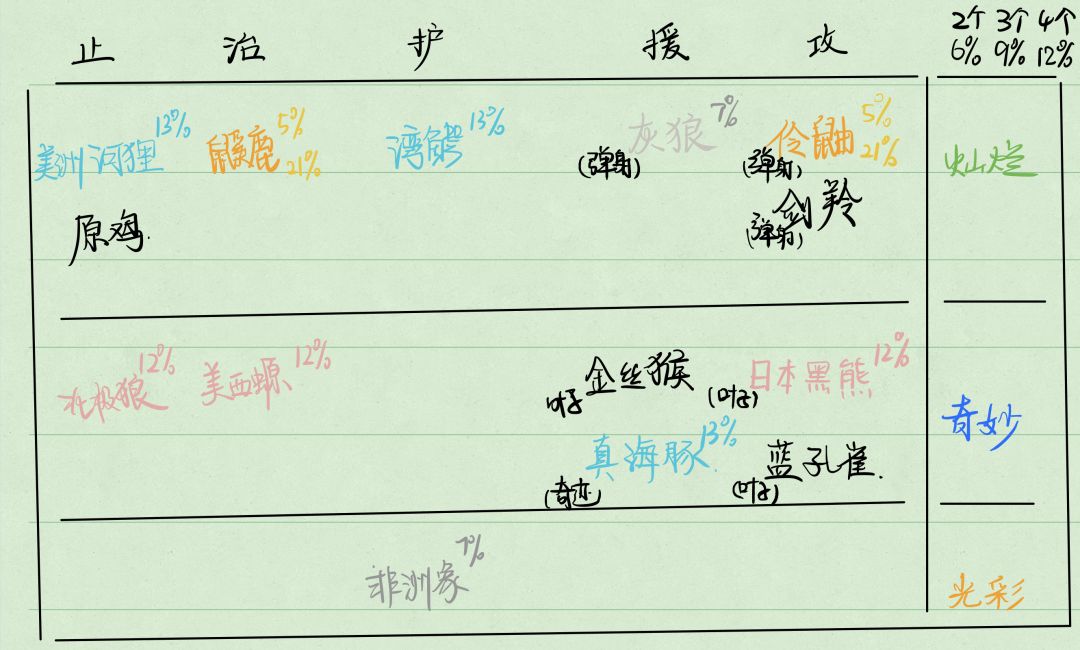 止 治 护 援 攻 2个 3个 4个
6% 9% 12%
美洲河狸 13% 鼷鹿 5% 21% 湾鳄 13% (弹射) 灰狼 7% (弹射) 伶鼬 5% 21% 灿烂
原鸡. (弹射) 剑羚
北极狼 12% 美西螈 12% 叶子 金丝猴 (叶子) 日本黑熊 12% 奇妙
(奇迹) 真海豚 13% (叶子) 蓝孔雀.
非洲象 7% 光彩